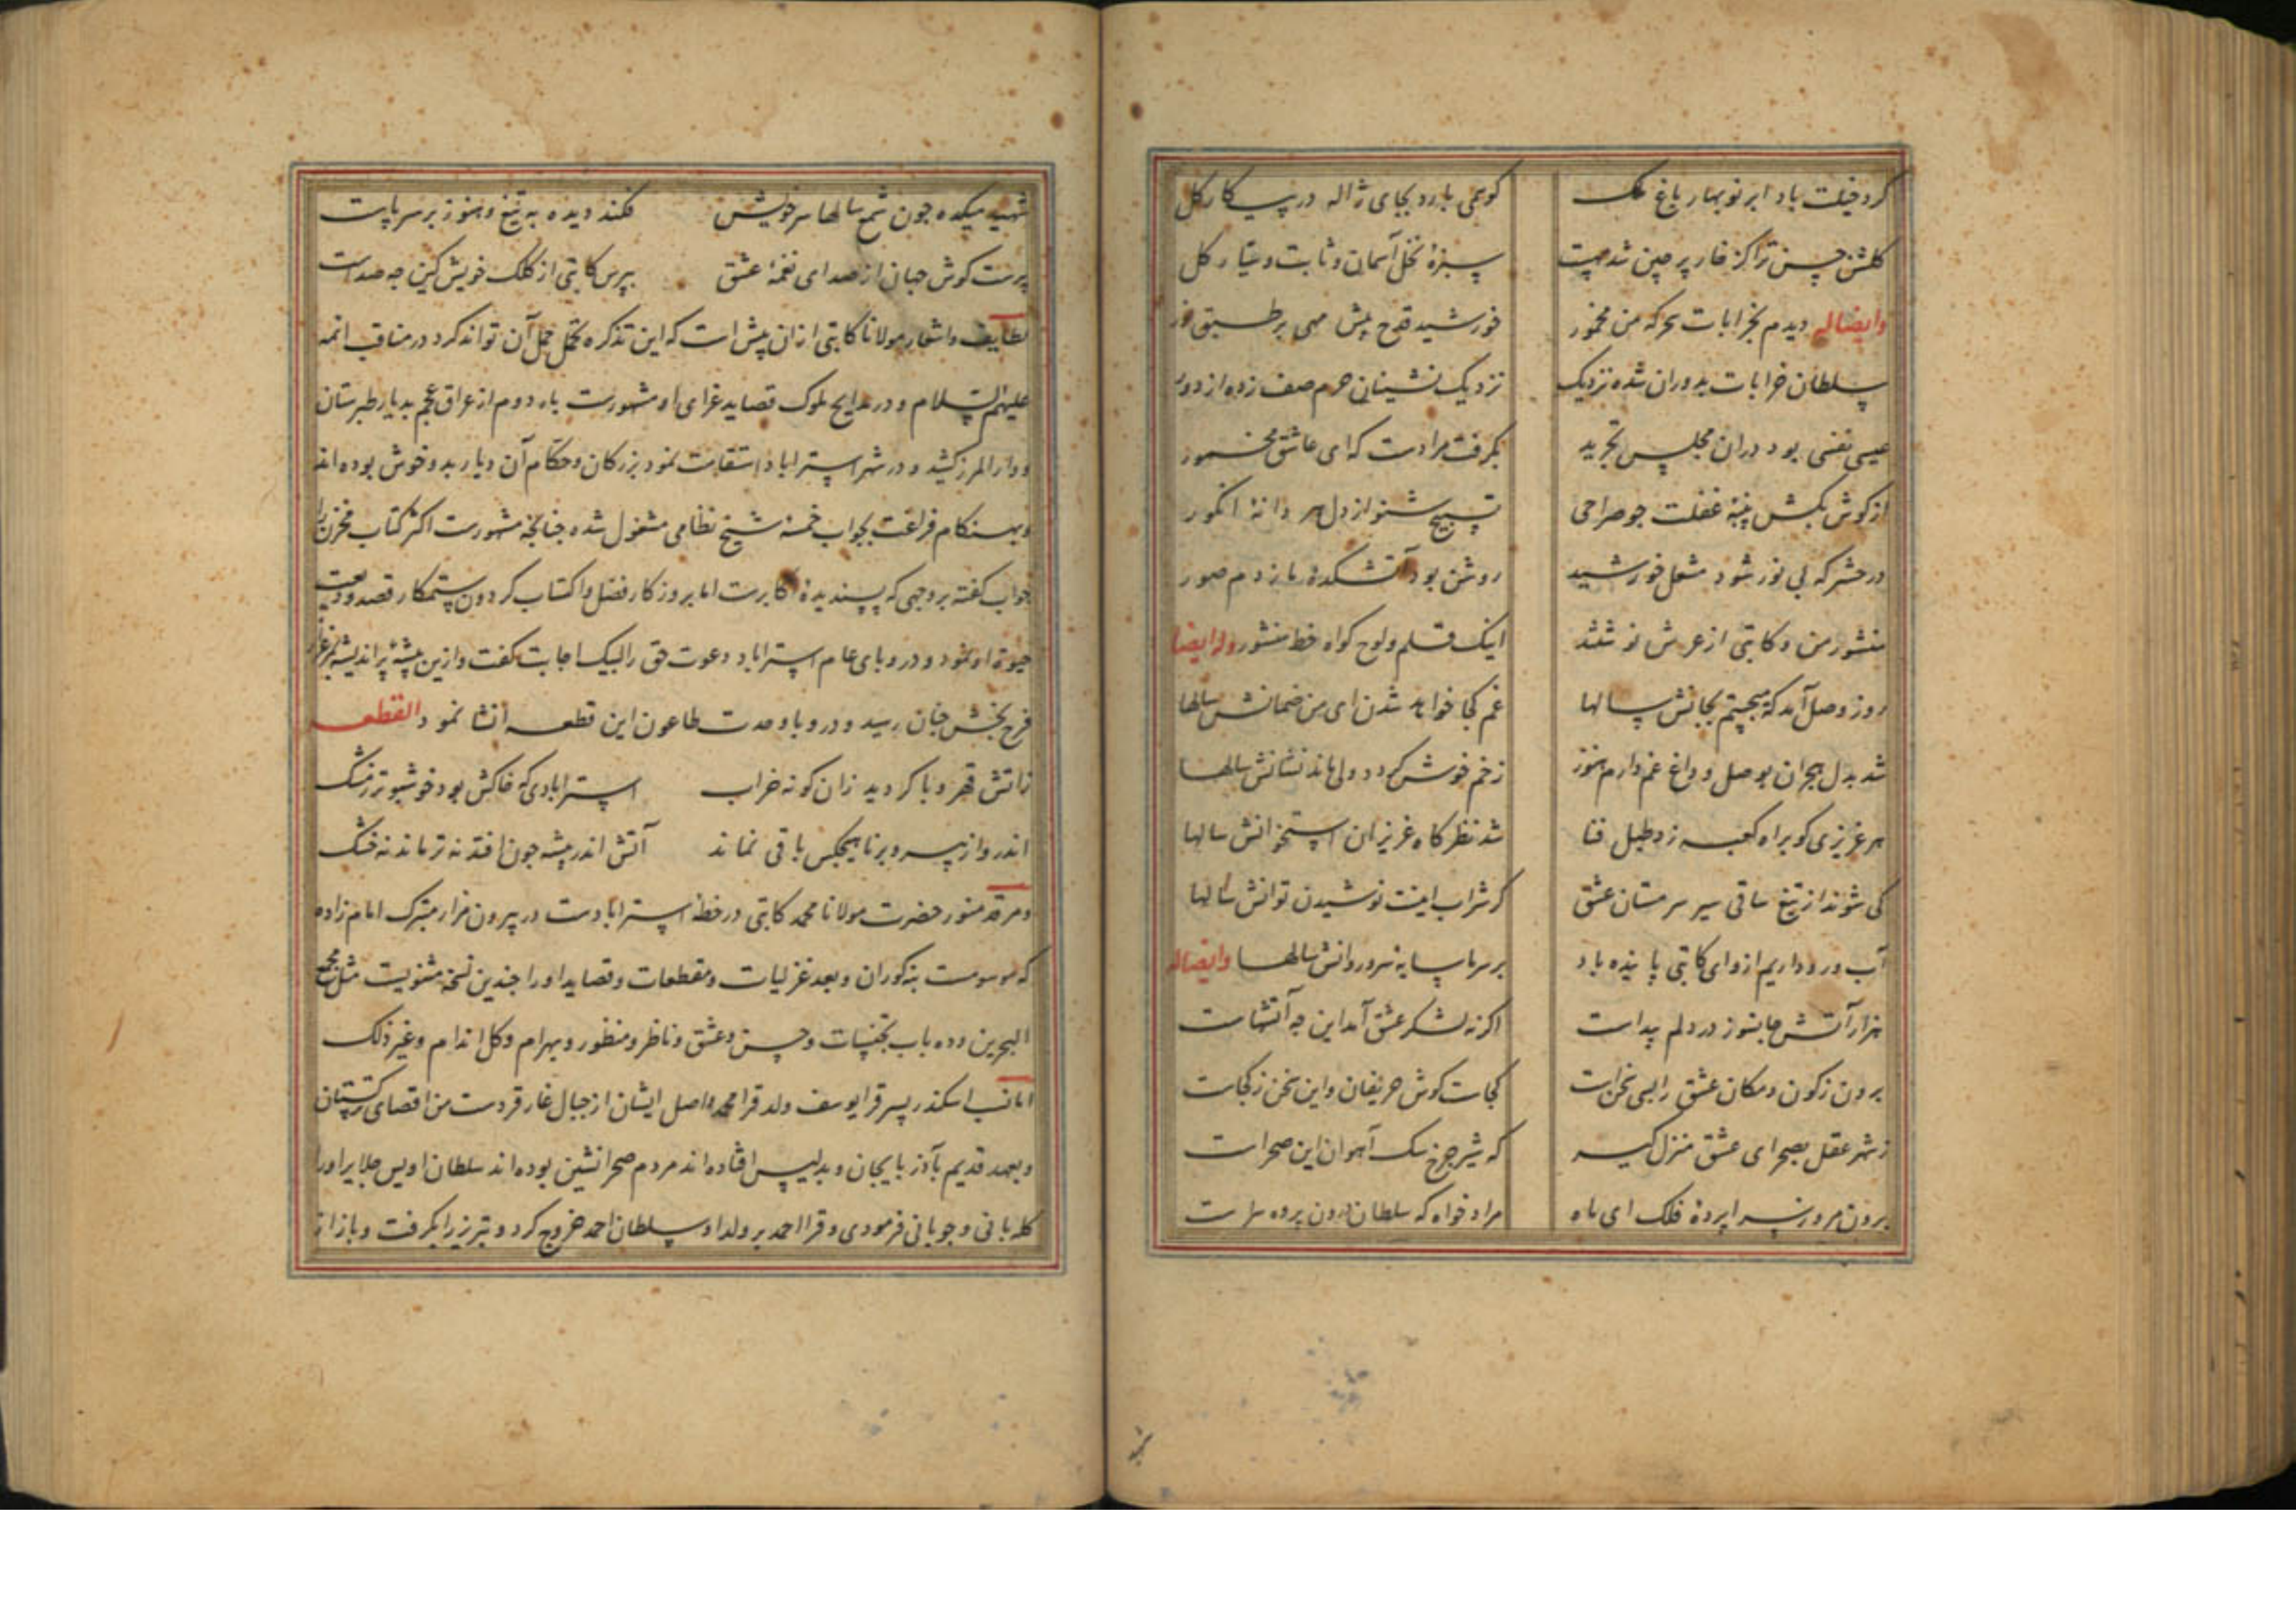 کرد خجلت باد ابر نوبهار باغ ملک کوهمی بارد بجای ژاله در پیکار کل
کلشن حسن ترا کز خار پرچین شد سبزهٔ نخل آسمان و ثابت و سیار کل
وایضاله دیدم بخرابات سحرکه من مخمور خورشید قدح پیش مهی بر طبق نور
سلطان خرابات بدوران شده نزدیک نزدیک نشینان حرم صف زده از دور
عیسی نفسی بود دران مجلس تجرید بکرفت مرا دست که ای عاشق مخمور
از کوش بکش پنبهٔ غفلت جو صراحی تسبیح شنو از دل هر دانهٔ انکور
در حشر که بی نور شود مشعل خورشید روشن بود آتشکدهٔ ما ز دم صور
منشور من و کاتبی از عرش نوشتند اینک قلم و لوح کواه خط منشور وله ایضا
روز وصل آمد که میجستم بجانش سالها غم کجا خواهد شدن ای من ضمانش سالها
شد بدل هجران بوصل و داغ غم دارم هنوز زخم خوش کردد ولی ماند نشانش سالها
هر عزیزی کو براه کعبه زد طبل فنا شد نظرکاه عزیزان استخوانش سالها
کی شوند از تیغ ساقی سیر سرمستان عشق کر شراب اینست نوشیدن توانش سالها
آب رو داریم از وای کاتبی پاینده باد بر سر ما سایهٔ سرو روانش سالها وایضاله
هزار آتش جانسوز در دلم پیداست اکر نه لشکر عشق آمد این چه آتشهاست
برون ز کون و مکان عشق را بسی سخن است کجاست کوش حریفان و این سخن ز کجاست
ز شهر عقل بصحرای عشق منزل کیر که شیر چرخ سک آهوان این صحراست
برون مرو ز سراپردهٔ فلک ای ماه مراد خواه که سلطان درون پرده سراست
شهید میکده جون شمع سالها سر خویش فکند دیده به تیغ و هنوز بر سر پاست
پرست کوش جهان از صدای نغمهٔ عشق بپرس کاتبی از کلک خویش کین چه صداست
لطایف و اشعار مولانا کاتبی ازان بیش است که این تذکره تحمل حمل آن تواند کرد در مناقب ائمه
علیهم السلام و در مدایح ملوک قصاید غرای او مشهورست بار دوم از عراق عجم بدیار طبرستان
و دار المرز کشید و در شهر استراباد استقامت نمود بزرکان و حکام آن دیار بدو خوش بوده اند
و بهنکام فراغت بجواب خمسهٔ شیخ نظامی مشغول شده جنانچه مشهورست اکثر کتاب مخزن را
جواب کفته بروجهی که پسندیدهٔ اکابرست اما بروزکار فضل و اکتساب کردون ستمکار قصد ودیعت
حیوة او نمود و در وبای عام استراباد دعوت حق را لبیک اجابت کفت و ازین بیشهٔ پر اندیشه بمرغزار
فرح بخش جنان رسید و در وبا و مدت طاعون این قطعه انشا نمود القطعه
زآتش قهر وبا کردید زان کونه خراب استرابادی که خاکش بود خوشبوتر ز مشک
اندرو از پیر و برنا هیچکس باقی نماند آتش اندر بیشه جون افتد نه تر ماند نه خشک
و مرقد منور حضرت مولانا محمد کاتبی در خطهٔ استرابادست در بیرون مزار متبرک امام زاده
که موسومست بنه کوران و بعد غزلیات و مقطعات و قصاید او را جندین نسخه مثنویست مثل مجمع
البحرین و ده باب تجنیسات و حسن و عشق و ناظر و منظور و بهرام و کل اندام و غیر ذلک
اما نسب اسکندر پسر قرا یوسف ولد قرا محمد و اصل ایشان از جبال غارقردست من اقصای ترکستان
و بعهد قدیم بآذربایجان و بدلیس افتاده اند مردم صحرانشین بوده اند سلطان اویس جلایر او را
کله بانی و جوپانی فرمودی و قرا احمد بر ولد او سلطان احمد خروج کرد و تبریز را بکرفت و باز از